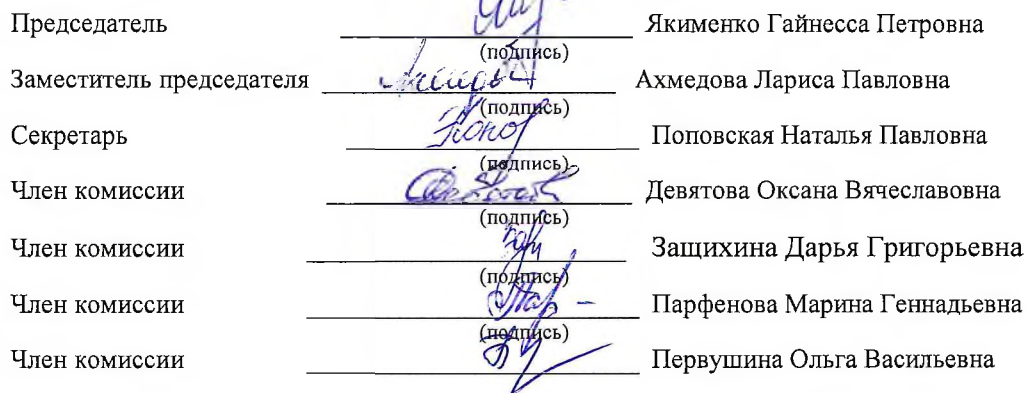 Председатель Якименко Гайнесса Петровна
(подпись)
Заместитель председателя Ахмедова Лариса Павловна
(подпись)
Секретарь Поповская Наталья Павловна
(подпись)
Член комиссии Девятова Оксана Вячеславовна
(подпись)
Член комиссии Защихина Дарья Григорьевна
(подпись)
Член комиссии Парфенова Марина Геннадьевна
(подпись)
Член комиссии Первушина Ольга Васильевна